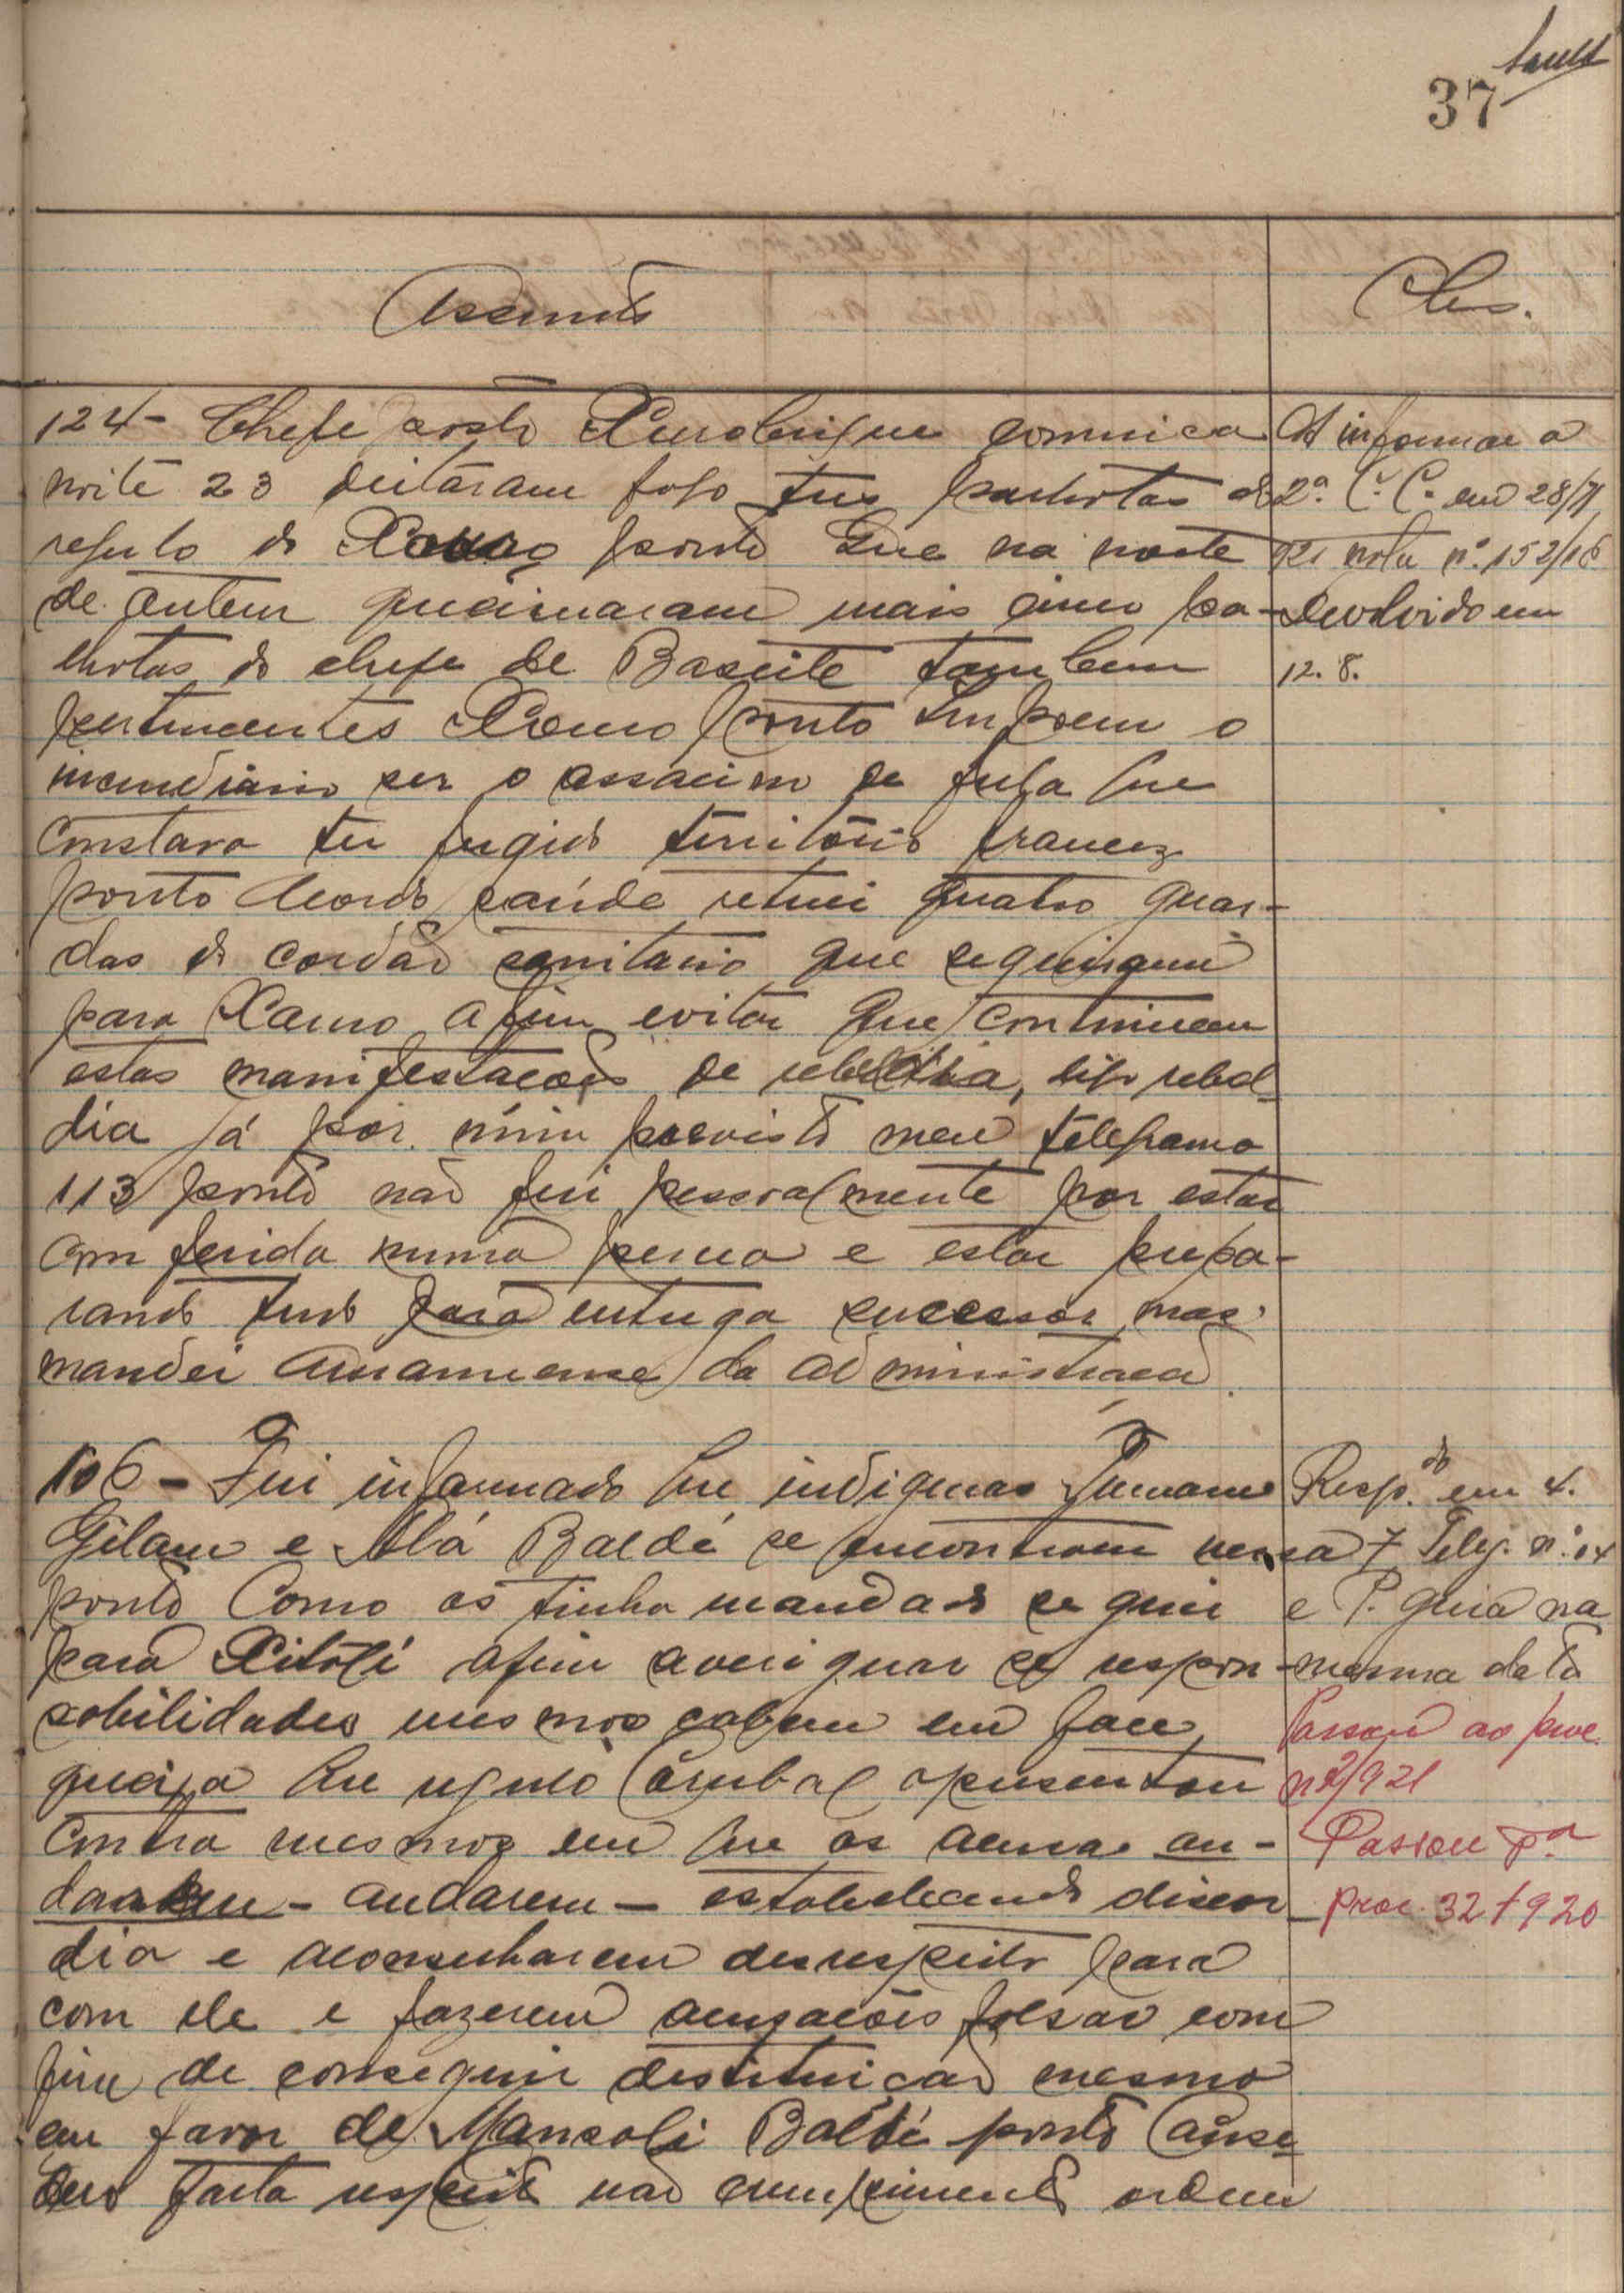 37
Assunto
Obs.
124 - Chefe posto comunica
noite 23 deitaram fogo tres palhotas do
regulo do ponto Que na noite
de ontem queimaram mais cinco pa-
lhotas do chefe de tambem
pertencentes ponto Supoem o
incendiario ser o assassino de que
constava ter fugido território francez
ponto saúde retirei quatro guar-
das do cordão sanitario que seguiram
para afim evitar que continuem
estas manifestações de digo rebel-
dia já por mim previsto meu telegrama
113 ponto não fui pessoalmente por estar
com ferida numa perna e estar prepa-
rando tudo para entrega sucessor mas
mandei amanuense da administração
106 - Fui informado que indigenas
e Alá Baldé se encontram nessa
ponto Como os tinha mandado seguir
para Xitoli afim averiguar que respon-
sabilidades mesmos cabem em face
queixa que regulo apresentou
contra mesmos em que os acusa an-
- andarem - estabelecendo discor-
dia e aconselharem desrespeito para
com ele e fazerem acusações falsas com
fim de conseguir destituição mesmo
em favor de Mansali Baldé ponto
falta respeito não cumprimento ordem
A informar a
2ª C. C. em 28/7
nota nº 152/16
Devolvido em
12. 8.
Resp.do em 4.
7 Teleg. nº 14
e P. guia na
mesma data
Passou ao proc.
nº 2/921
Passou pª
proc. 32/920